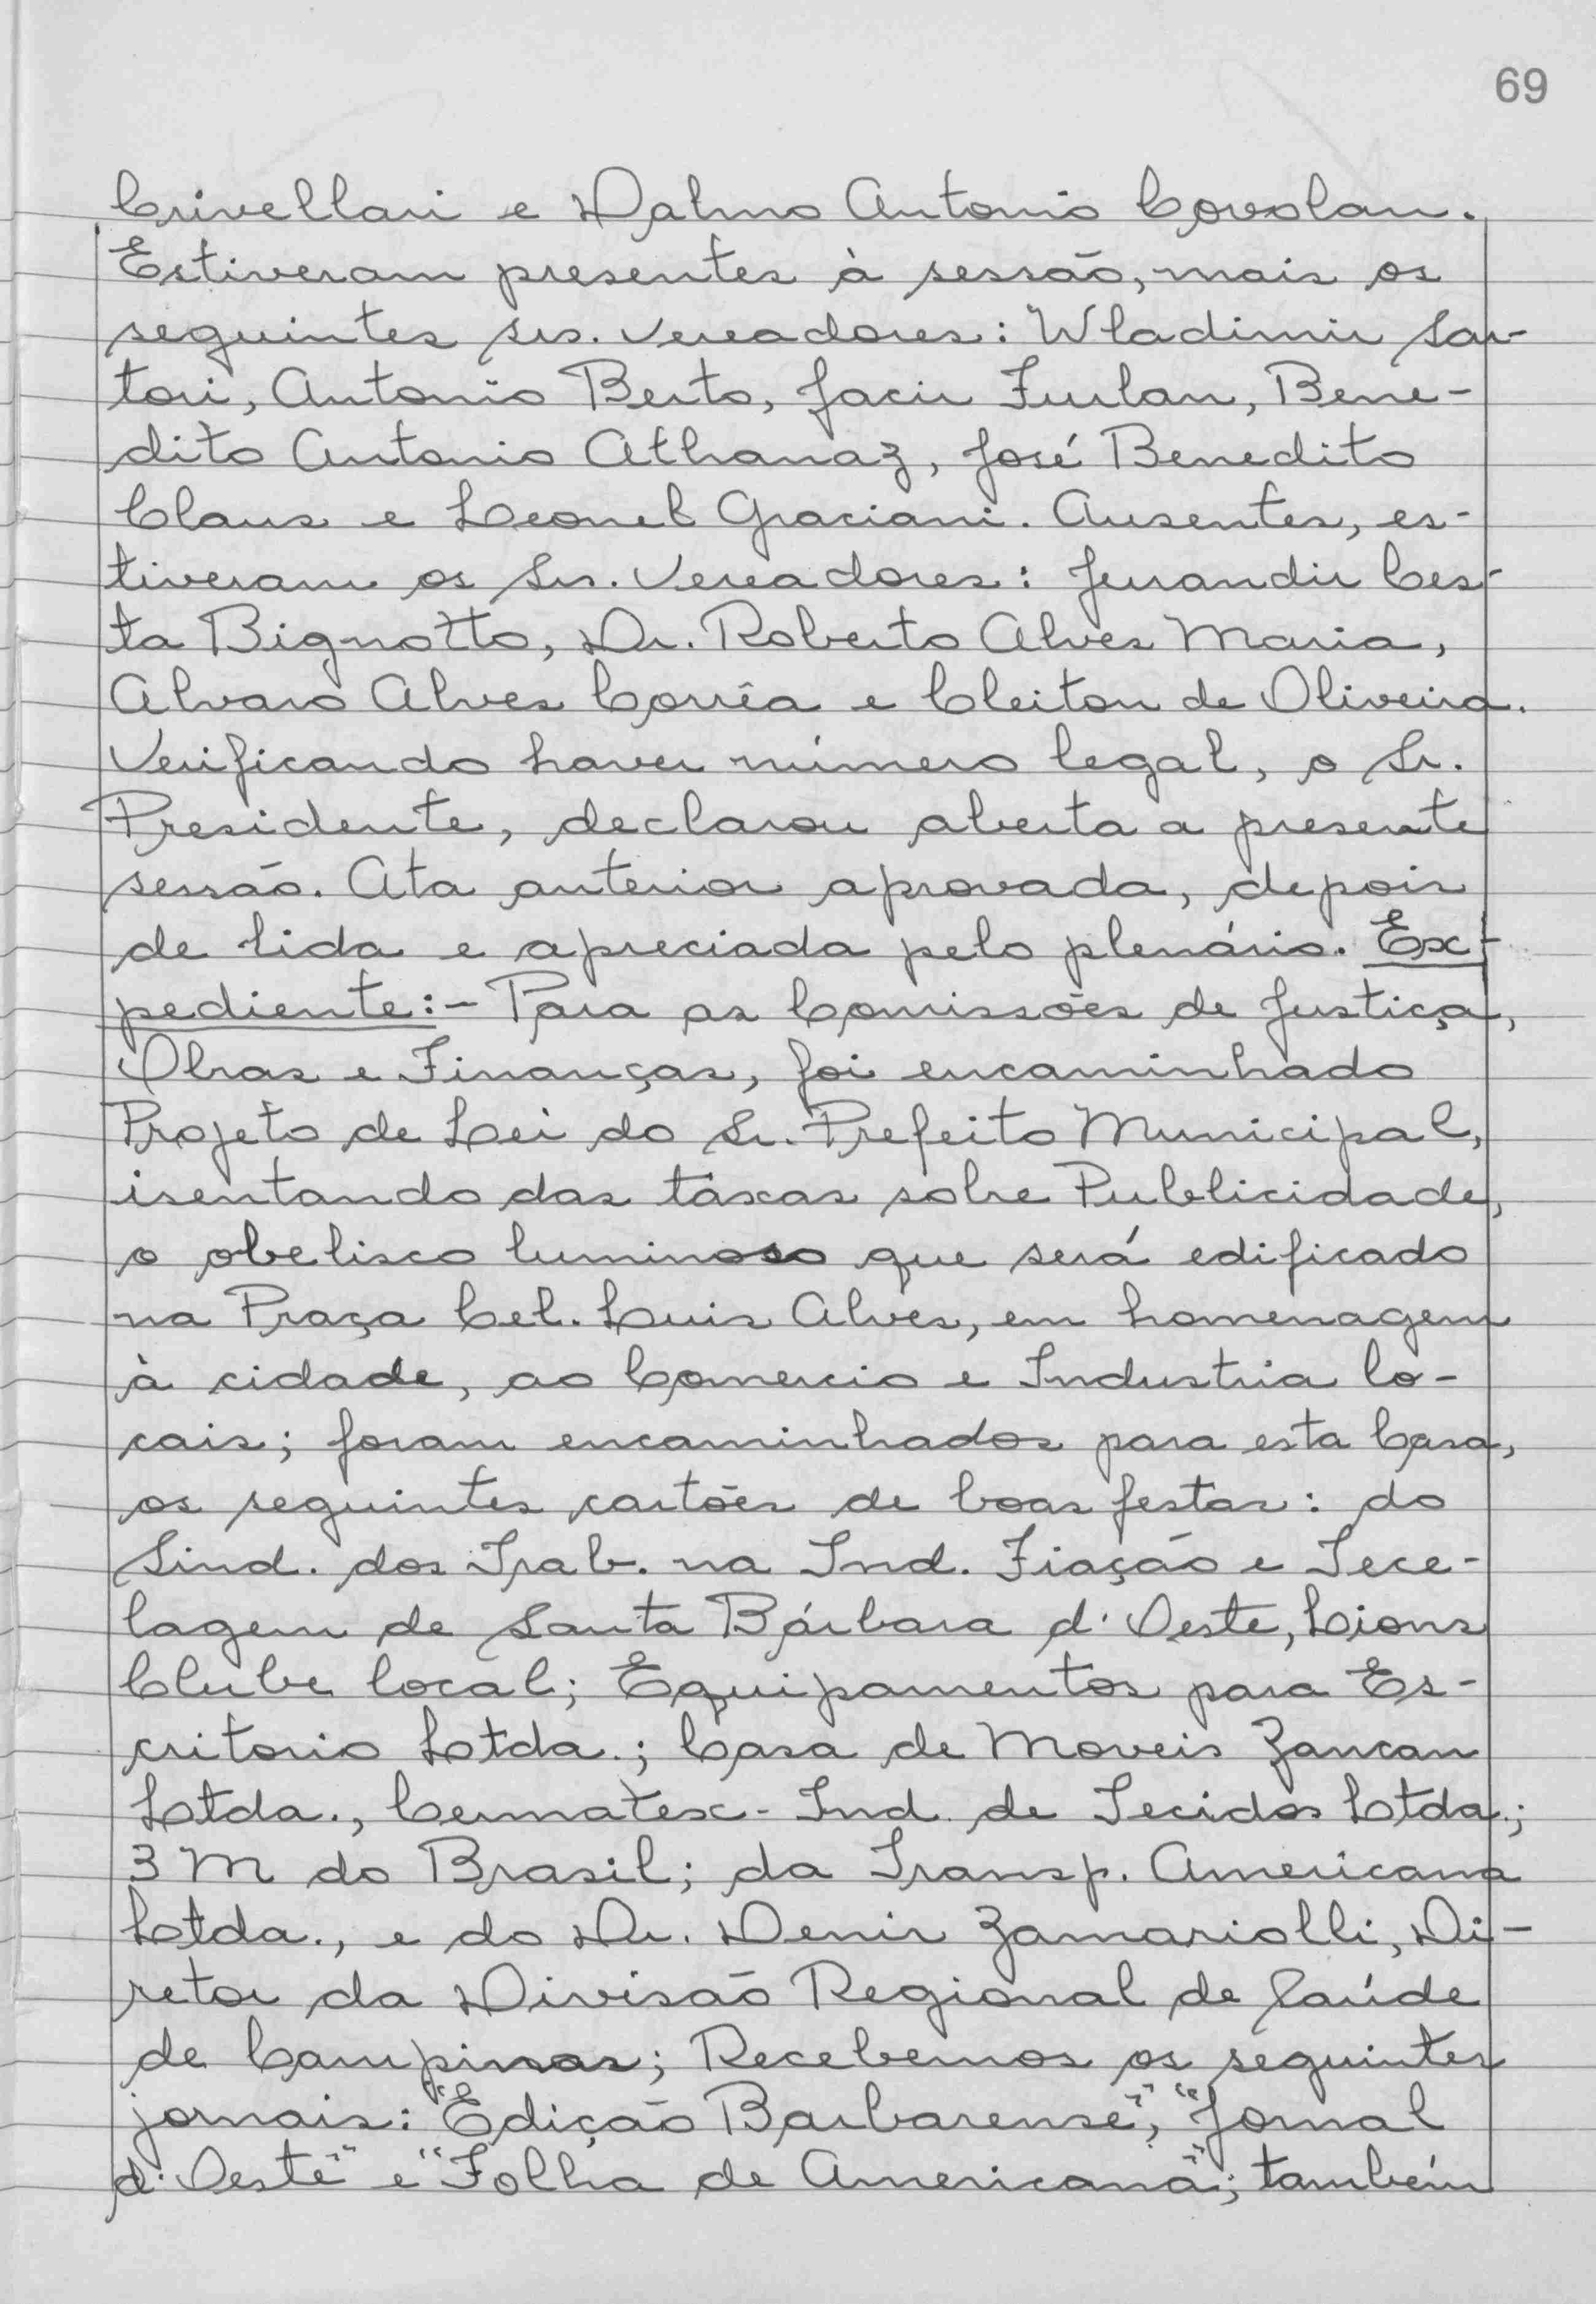 69
Crivellari e Dalmo Antonio Covolan.
Estiveram presentes à sessão, mais os
seguintes srs. vereadores: Wladimir Sar-
tori, Antonio Berto, Jacir Furlan, Bene-
dito Antonio Athanaz, José Benedito
Claus e Leonel Graciani. Ausentes, es-
tiveram os Srs. Vereadores: Jurandir Ces-
ta Bignotto, Dr. Roberto Alves Maria,
Alvaro Alves Corrêa e Cleiton de Oliveira.
Verificando haver número legal, o Sr.
Presidente, declarou aberta a presente
sessão. Ata anterior aprovada, depois
de lida e apreciada pelo plenário. Ex-
pediente:- Para as Comissões de Justiça,
Obras e Finanças, foi encaminhado
Projeto de Lei do Sr. Prefeito Municipal,
isentando das taxas sobre Publicidade,
o obelisco luminoso que será edificado
na Praça Cel. Luis Alves, em homenagem
à cidade, ao Comercio e Industria lo-
cais; foram encaminhados para esta Casa,
os seguintes cartões de boas festas: do
Sind. dos Trab. na Ind. Fiação e Tece-
lagem de Santa Bárbara d'Oeste, Lions
Clube local; Equipamentos para Es-
critorio Ltda.; Casa de Moveis Zancan
Ltda., Cermatex - Ind. de Tecidos Ltda.;
3 M do Brasil; da Transp. Americana
Ltda., e do Dr. Denir Zamariolli, Di-
retor da Divisão Regional de Saúde
de Campinas; Recebemos os seguintes
jornais: "Edição Barbarense", "Jornal
d'Oeste" e "Folha de Americana"; também